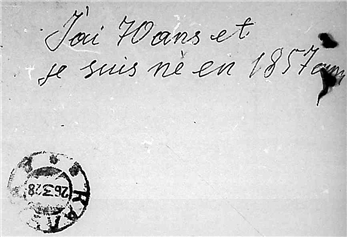 J'ai 70 ans et
je suis nè en 1857
26.3.28